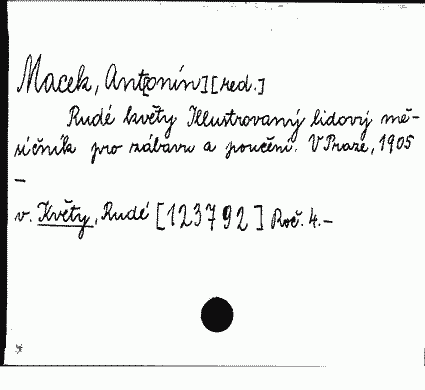 Macek, Ant[onín] [red.]
Rudé květy Illustrovaný lidový mě-
síčník pro zábavu a poučení. V Praze, 1905
–
v. Květy, Rudé [123792] Roč. 4.–